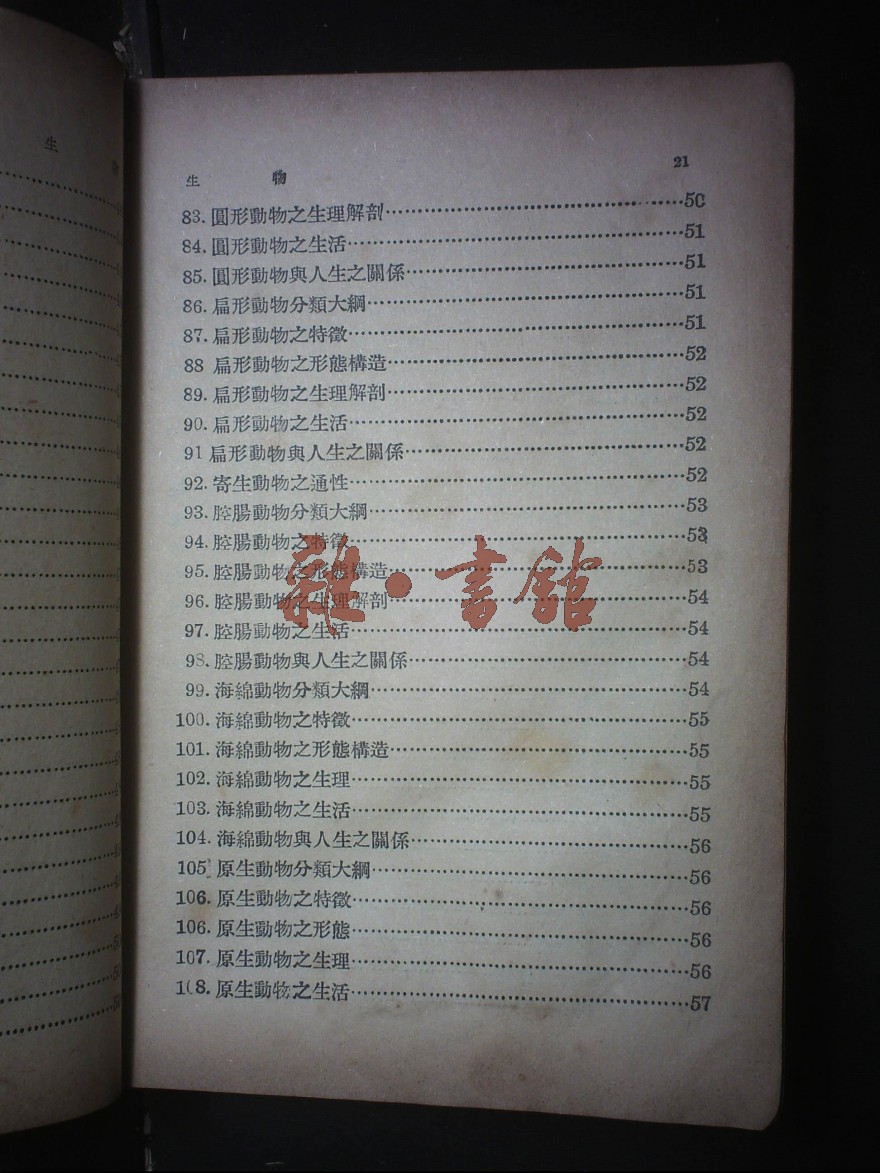 生 物 21
83. 圓形動物之生理解剖……50
84. 圓形動物之生活……51
85. 圓形動物與人生之關係……51
86. 扁形動物分類大綱……51
87. 扁形動物之特徵……51
88 扁形動物之形態構造……52
89. 扁形動物之生理解剖……52
90. 扁形動物之生活……52
91 扁形動物與人生之關係……52
92. 寄生動物之通性……52
93. 腔腸動物分類大綱……53
94. 腔腸動物之特徵……53
95. 腔腸動物之形態構造……53
96. 腔腸動物之生理解剖……54
97. 腔腸動物之生活……54
98. 腔腸動物與人生之關係……54
99. 海綿動物分類大綱……54
100. 海綿動物之特徵……55
101. 海綿動物之形態構造……55
102. 海綿動物之生理……55
103. 海綿動物之生活……55
104. 海綿動物與人生之關係……56
105 原生動物分類大綱……56
106. 原生動物之特徵……56
106. 原生動物之形態……56
107. 原生動物之生理……56
108. 原生動物之生活……57
雜·書館
生